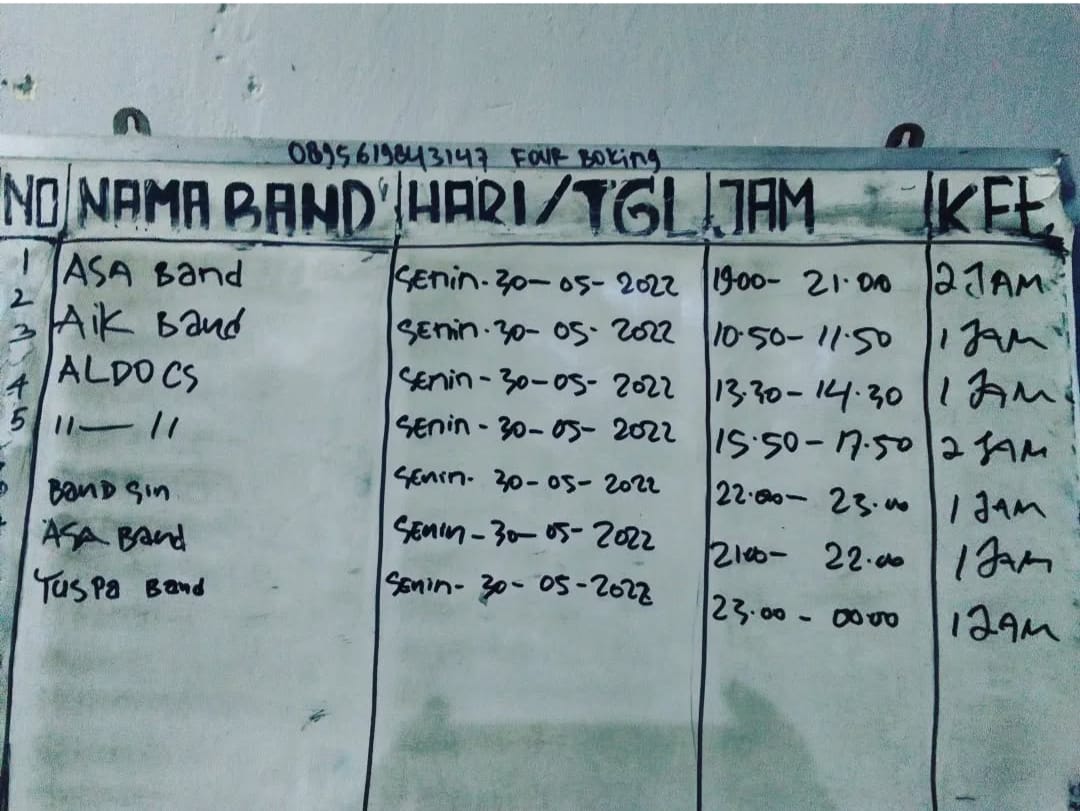 0895619843147 FOUR BOKING
NO NAMA BAND HARI/TGL JAM KET
1 ASA Band SEnin.30-05-2022 19.00-21.00 2 JAM
2 AiK Band SEnin.30-05-2022 10.50-11.50 1 JAM
3 ALDOCS SEnin-30-05-2022 13.30-14.30 1 JAM
4 "—" SEnin-30-05-2022 15.50-17.50 2 JAM
5 Band Gin SEnin. 30-05-2022 22.00-23.00 1 JAM
ASA Band SEnin-30-05-2022 21.00-22.00 1 JAM
Yuspa Band SEnin-30-05-2022 23.00-00.00 1 JAM